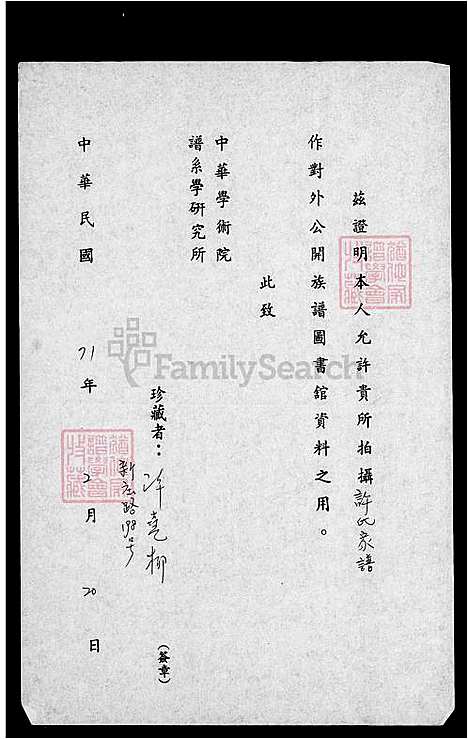 茲證明本人允許貴所拍攝許氏家譜
作對外公開族譜圖書館資料之用。
此致
中華學術院
譜系學研究所
珍藏者：許堯柳
新庄路198号
(簽章)
中華民國71年2月20日
FamilySearch